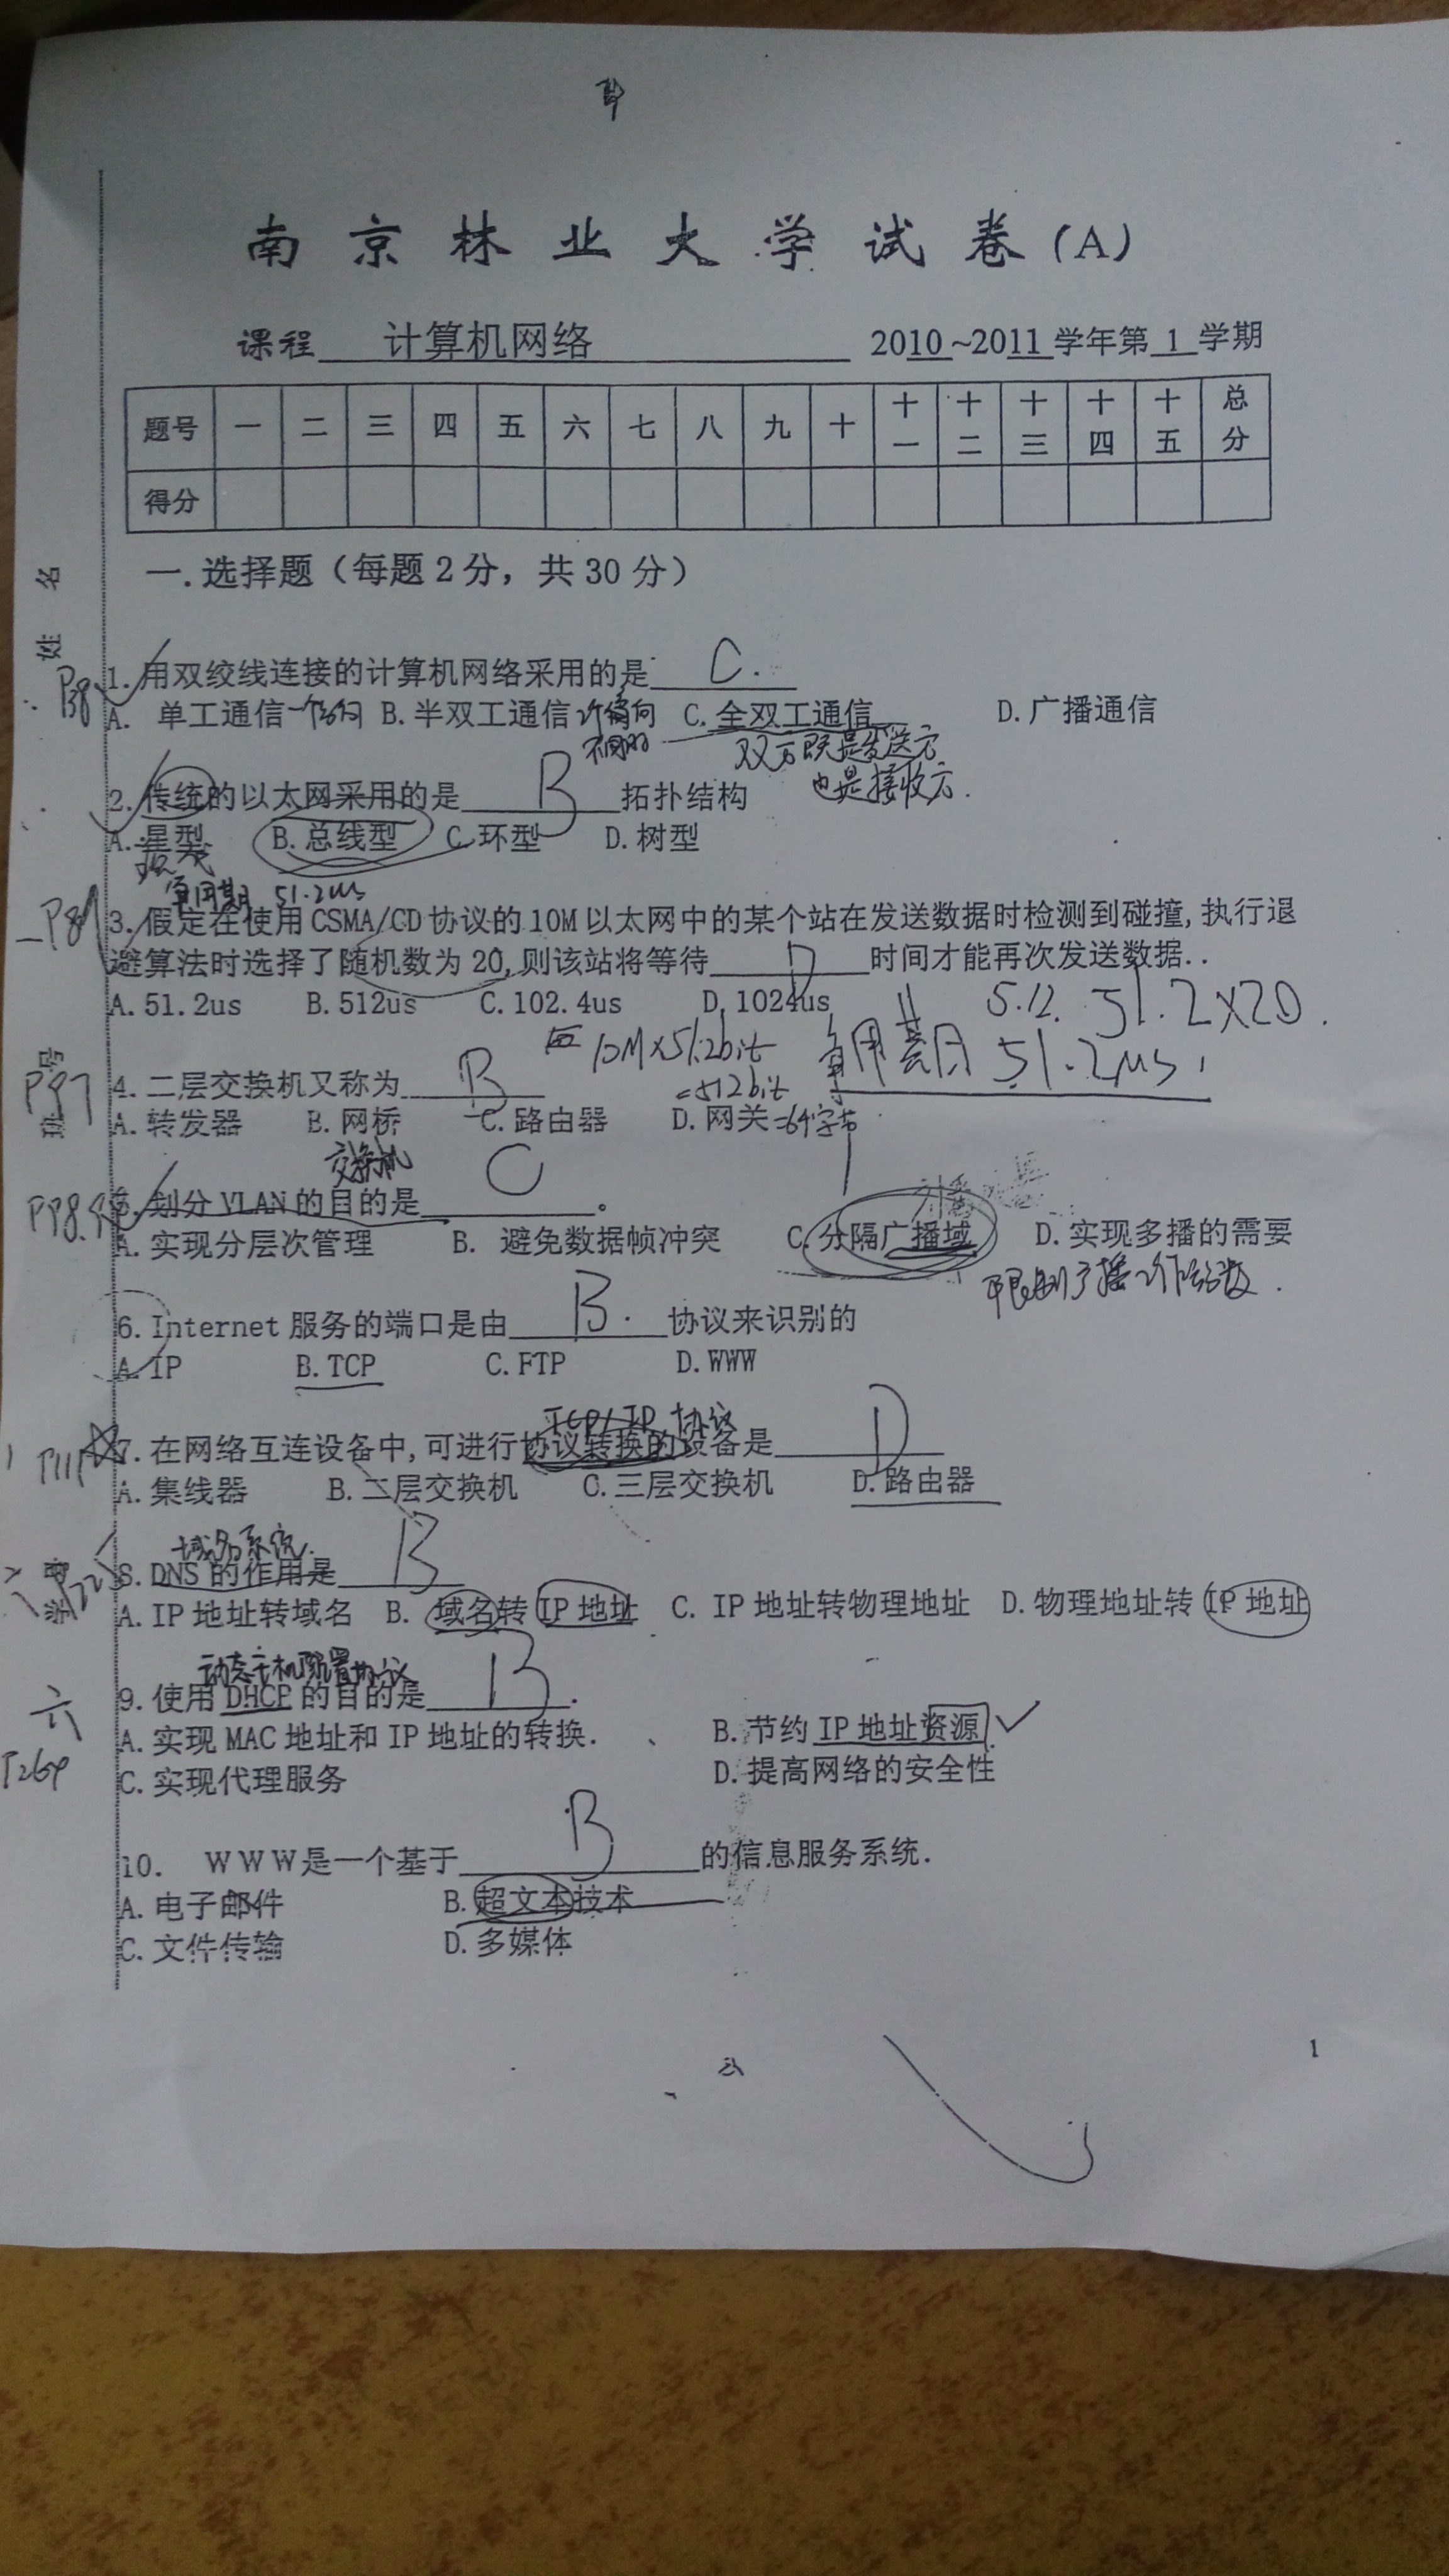 南京林业大学试卷(A)
课程 计算机网络 2010~2011学年第1学期
题号 一 二 三 四 五 六 七 八 九 十 十一 十二 十三 十四 十五 总分
得分
一.选择题（每题2分，共30分）
姓名
P38 1.用双绞线连接的计算机网络采用的是 C.
A. 单工通信 B.半双工通信 C.全双工通信 D.广播通信
双方既是发送方
也是接收方.
2.传统的以太网采用的是 B 拓扑结构
A.星型 B.总线型 C.环型 D.树型
争用期 51.2us
P81 3.假定在使用CSMA/CD协议的10M以太网中的某个站在发送数据时检测到碰撞,执行退
避算法时选择了随机数为20,则该站将等待 D 时间才能再次发送数据..
A.51.2us B.512us C.102.4us D.1024us
5.12. 51.2×20.
10M×51.2bit 争用期 51.2μs
=512bit
=64字节
班号
P97 4.二层交换机又称为 B
A.转发器 B.网桥 C.路由器 D.网关
交换机
5.划分VLAN的目的是 C 。
A.实现分层次管理 B. 避免数据帧冲突 C.分隔广播域 D.实现多播的需要
6.Internet服务的端口是由 B. 协议来识别的
A.IP B.TCP C.FTP D.WWW
TCP/IP 协议
P111 7.在网络互连设备中,可进行协议转换的设备是 D
A.集线器 B.二层交换机 C.三层交换机 D.路由器
域名系统.
学号
8.DNS的作用是 B
A.IP地址转域名 B. 域名转IP地址 C. IP地址转物理地址 D.物理地址转IP地址
动态主机配置协议
六 9.使用DHCP的目的是 B .
A.实现MAC地址和IP地址的转换. B.节约IP地址资源.
C.实现代理服务 D.提高网络的安全性
10. WWW是一个基于 B 的信息服务系统.
A.电子邮件 B.超文本技术
C.文件传输 D.多媒体
1